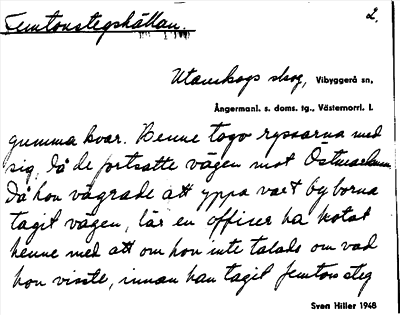 Femtonstegshällan. 2.
Utanskogs skog, Vibyggerå sn,
Ångermanl. s. doms. tg., Västernorrl. l.
gumma kvar. Henne togo ryssarna med
sig, då de fortsatte vägen mot Östmarkum
Då hon vägrade att yppa vart byborna
tagit vägen, lär en officer ha hotat
henne med att om hon inte talade om vad
hon visste, innan han tagit femton steg
Sven Hiller 1948